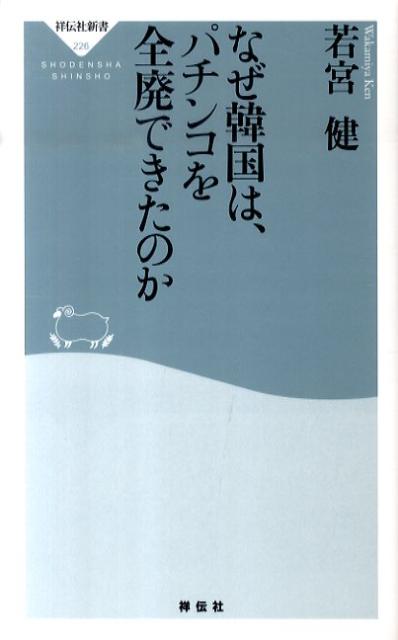 祥伝社新書
226
SHODENSHA
SHINSHO
若宮 健
Wakamiya Ken
なぜ韓国は、
パチンコを
全廃できたのか
祥伝社